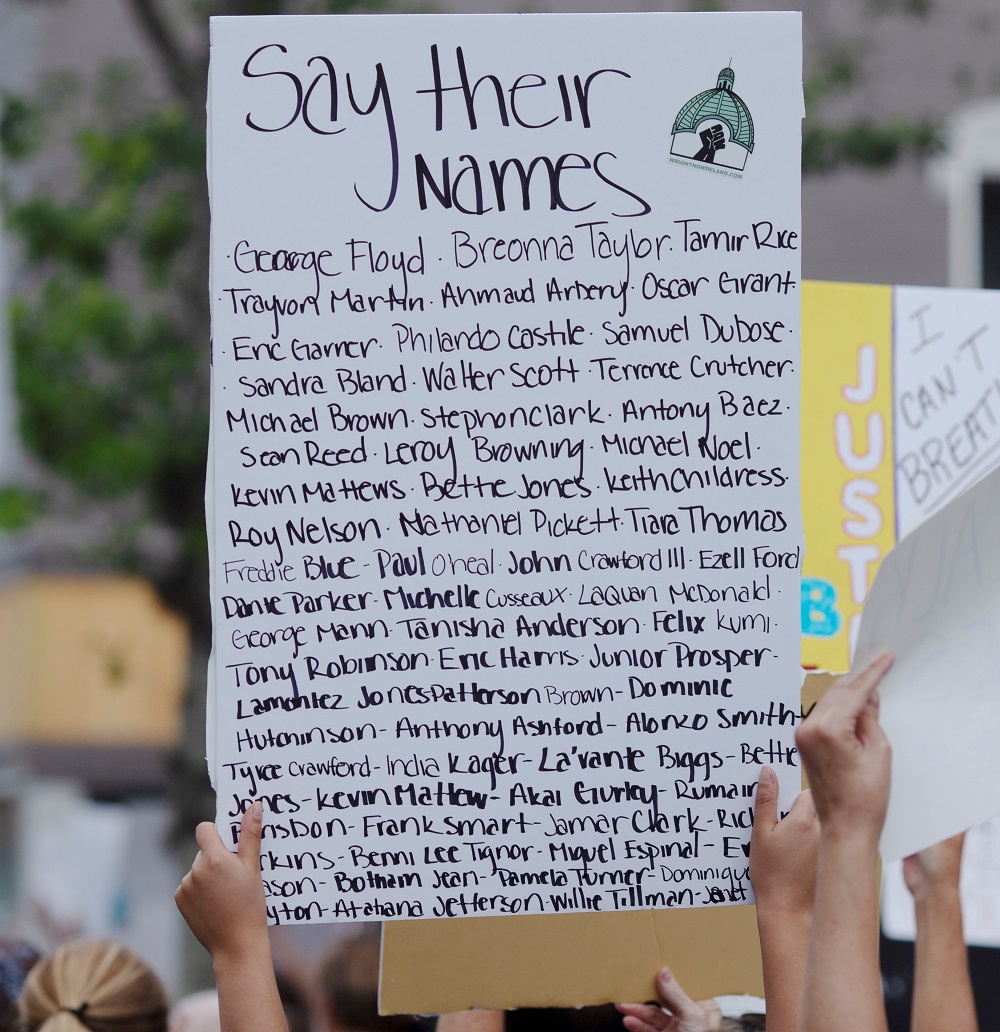 Say their
Names
WRIGHTNOWDELAND.COM
· George Floyd · Breonna Taylor · Tamir Rice
· Trayvon Martin · Ahmaud Arbery · Oscar Grant
· Eric Garner · Philando Castile · Samuel Dubose ·
· Sandra Bland · Walter Scott · Terrence Crutcher ·
Michael Brown · Stephon Clark · Antony Baez ·
Sean Reed · Leroy Browning · Michael Noel ·
Kevin Matthews · Bettie Jones · Keith Childress ·
Roy Nelson · Nathaniel Pickett · Tiara Thomas
Freddie Blue - Paul O'neal · John Crawford III · Ezell Ford
Dante Parker · Michelle Cusseaux · LaQuan McDonald ·
George Mann · Tanisha Anderson · Felix Kumi ·
Tony Robinson · Eric Harris · Junior Prosper -
Lamontez Jones Patterson Brown - Dominic
Hutchinson - Anthony Ashford - Alonzo Smith -
Tyree Crawford - India Kager - La'vante Biggs - Bettie
Jones - Kevin Matthew - Akai Gurley - Rumain
Brisbon - Frank Smart - Jamar Clark - Rich
rkins - Benni Lee Tignor - Miguel Espinal - Er
ason - Botham Jean - Pamela Turner - Dominique
yton - Atatiana Jefferson - Willie Tillman - Janet
JUST
B
I
CAN'T
BREAT